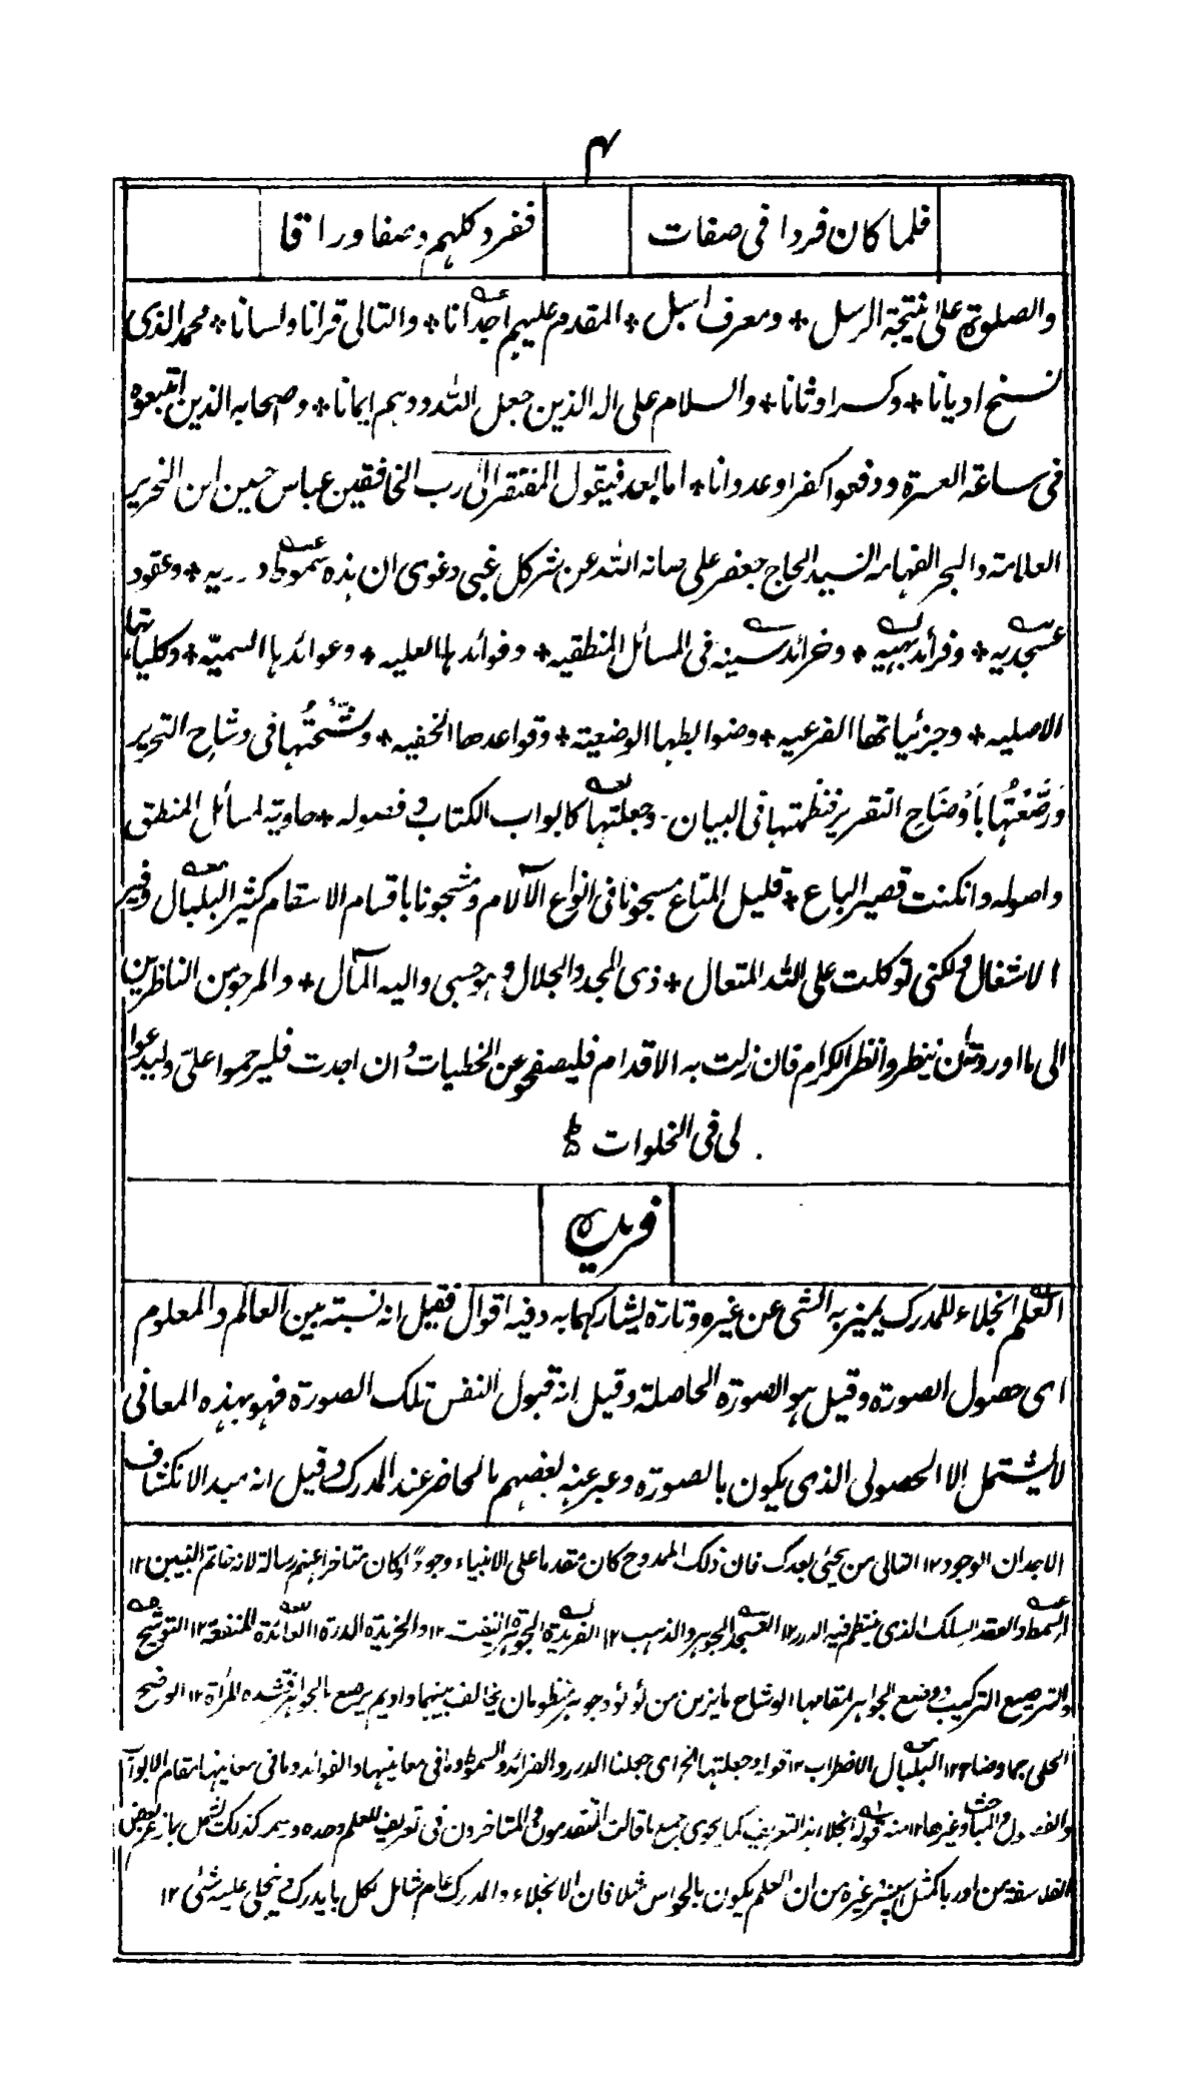 ۴
فلما كان فردا فى صفات ففرد كلهم وصفا وراقا
والصلوة على نتيجة الرسل * ومعرف السبل * المقدم عليهم اجدانا * والتالى قرانا ولسانا * محمد الذى
نسخ اديانا * وكسر اوثانا * والسلام على اله الذين جعل الله ودهم ايمانا * وصحابه الذين اتبعوه
فى ساعة العسرة ودفعوا كفرا وعدوانا * اما بعد فيقول المفتقر الى رب الخافقين عباس حسين ابن النحرير
العلامة والبحر الفهامه السيد الحاج جعفر على صانه الله عن شر كل غبى وغوى ان هذه سموط درريه * وعقود
عسجديه * وفرائد بهيه * وخرائد سنيه فى المسائل المنطقيه * وفوائدها العليه * وعوائدها السميّه * وكلياتها
الاصليه * وجزئياتها الفرعيه * وضوابطها الوضعيته * وقواعدها الخفيه * وشّحتُها فى وشاح التحرير
وَرصَّعْتُها بأوْضَاحِ التقرير فنظمتها فى البيان وجعلتها كابواب الكتاب و فصوله * حاوية لمسائل المنطق
واصوله وانكنت قصير الباع * قليل المتاع مسجونا فى انواع الآلام ومشجونا باقسام الاسقام كثير البلبال وفير
الاشغال ولكنى توكلت على الله المتعال * ذى المجد والجلال و هو حسبى واليه المآل * والمرجو من الناظرين
الى ما اوردت ان ينظروا نظر الكرام فان زلت به الاقدام فليصفحوا عن الخطيات و ان اجدت فليرحموا علىّ وليدعوا
لى فى الخلوات
فريده
العلم انجلاء للمدرك يميز به الشى عن غيره وتارة ليشاركهما به وفيه اقوال فقيل انه نسبته بين العالم والمعلوم
اى حصول الصورة وقيل هو الصورة الحاصلة وقيل انه قبول النفس تلك الصورة فهو بهذه المعانى
لا يشتمل الا الحصولى الذى يكون بالصورة وعبر عنه بعضهم بالحاضر عند المدرك وقيل انه مبدء الانكشاف
الاجدان الوجود ١٢ التالى من يجئى بعدك فان ذلك الممدوح كان مقدما على الانبياء وجودً وكان متاخرا عنهم رسالة لانه خاتم النبيين ١٢
السمط والعقد السلك الذى ينتظم فيه الدرر ١٢ العسجد الجوهر والذهب ١٢ الفريدة الجوهر النفيسة ١٢ والخريدة الدرة العائدة المنفعة ١٢ التوشيح
والترصيع التركيب ووضع الجواهر لمقامها الوشاح ما يزين من لؤلؤ وجوهر منظومان يخالف بينهما واديم يرصع بالجواهر تشده المرأة ١٢ الوضح
الحلى جمعه اوضاح ١٢ البلبال الاضطراب ١٢ قوله وجعلتها الخ اى جعلنا الدرر والفرائد والسموط وما فى معانيها والفوائد وما فى معانيها بمقام الابواب
والفصول والمباحث وغيرها ١٢ منه قوله انجلاء هذا التعريف كما يحوى جميع ما قالت المتقدمون والمتاخرون فى تعريف للعلم وحده
الفلاسفة من ان العلم يكون بالحواس مثلا فان الانجلاء والمدرك عام شامل لكل ما يدرك و ينجلى عليه شئى ١٢